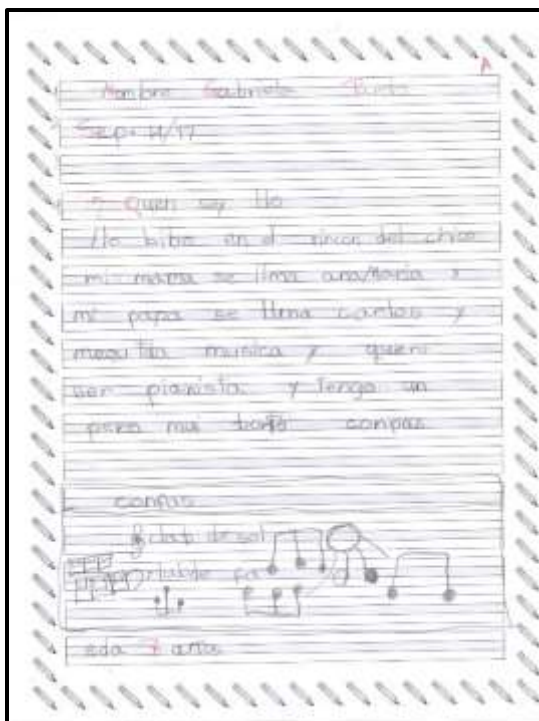 A
Nombre Gabriela
Sep. 14/17
? Quen soy Llo
Llo bibo en el rincon del chico
mi mama se llma ana maria y
mi papa se llma carlos y
megusta musica y queni
ser pianista. y Tengo un
pero mui compas
conpas
clab de sol
clab de fa
eda 7 años